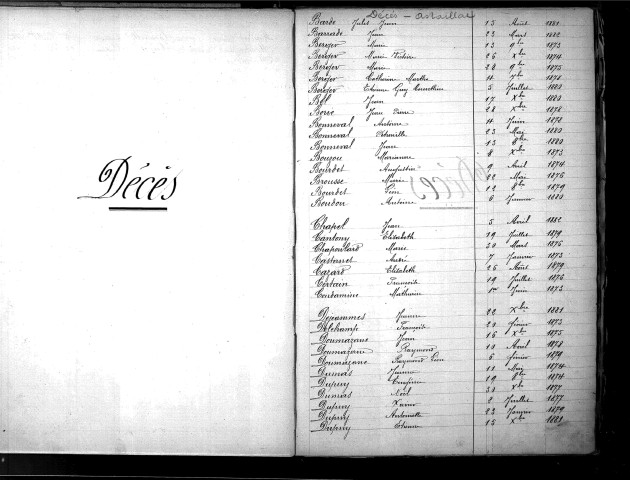 Décès
Décès - Astaillac
Barde Jules Jean 13 Août 1881
Barrade Jean 23 Mars 1882
Berger Marie 13 9bre 1873
Berger Marie 26 Xbre 1874
Berger Marie 28 9bre 1873
Berger Catherine Marthe 11 7bre 1878
Berger Etienne Guy 5 Juillet 1880
Jean 17 Xbre 1880
Borie Jean Pierre 28 Xbre 1878
Bonneval Antoine 11 Juin 1878
Bonneval Pétronille 23 Mai 1880
Bonneval Jean 13 8bre 1880
Bouzou Marianne 8 Xbre 1873
Bourdet Augustin 9 Avril 1874
Brousse Marie 22 Mai 1876
Bourdet 12 8bre 1879
Boudon Antoine 6 Janvier 1880
Chapel Jean 5 Avril 1882
Cantony Elisabeth 19 Juillet 1879
Chapoulard Marie 20 Mars 1876
Castanet André 7 Janvier 1873
Cazard Elisabeth 26 Août 1879
Certain François 19 Juillet 1876
Condamine Mathurin 1er Juin 1873
Dejammes Jeanne 22 Xbre 1881
Delchamp François 21 février 1873
Doumazane Jean 16 Xbre 1875
Doumazane Raymond 11 Avril 1878
Doumazane Raymond 6 février 1879
Dumas Jeanne 11 Mai 1874
Dupuy 19 8bre 1874
Dumas Noël 31 Xbre 1877
Dupuy Xavier 2 Juillet 1877
Dupuy Antoinette 23 Janvier 1879
Dupuy Etienne 15 Xbre 1881